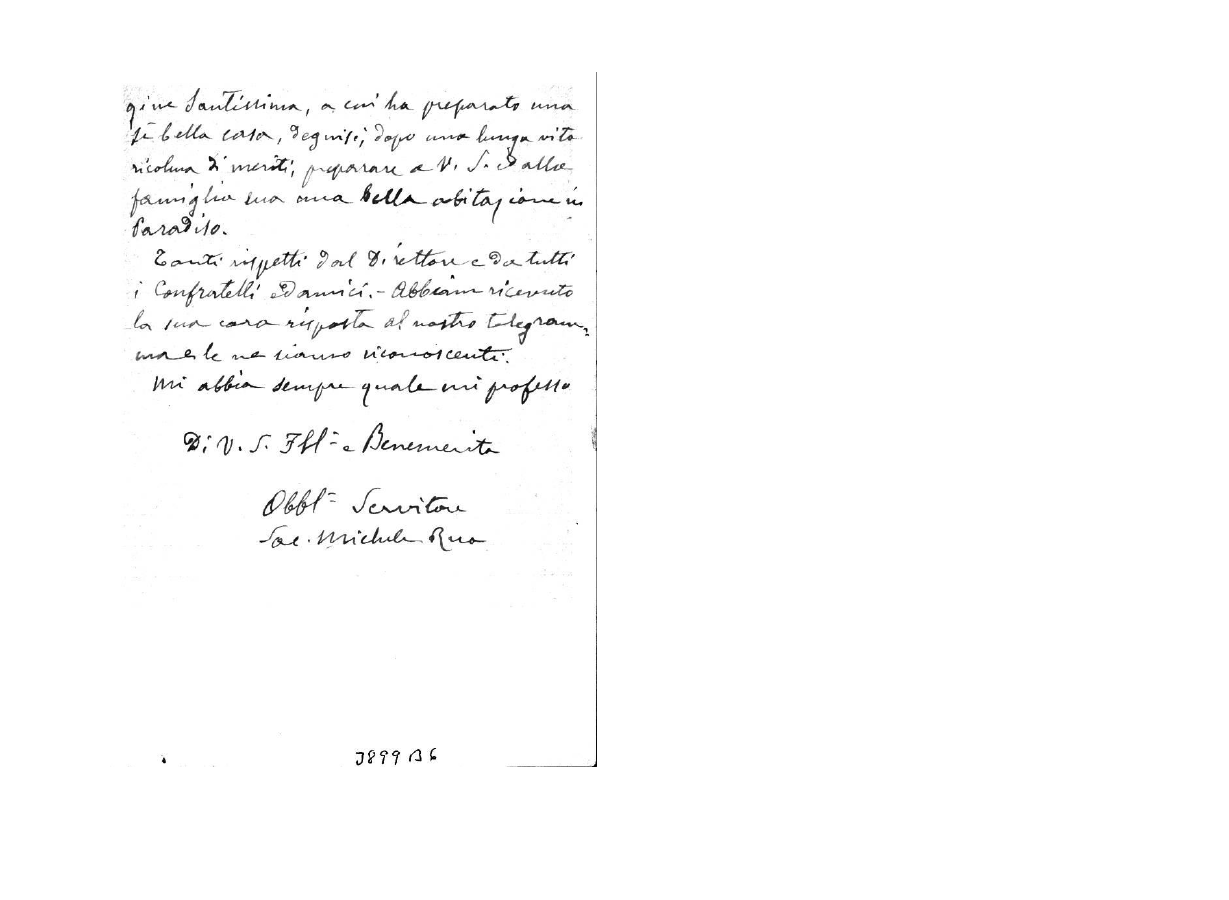 gine Santissima, a cui ha preparato una
sì bella casa, degnisi, dopo una lunga vita
ricolma di meriti, preparare a V. S. e alla
famiglia sua una bella abitazione in
Paradiso.
Tanti rispetti dal Direttore e da tutti
i Confratelli ed amici. - Abbiam ricevuto
la sua cara risposta al nostro telegram-
ma e le ne siamo riconoscenti.
Mi abbia sempre quale mi professo
Di V. S. Ill- e Benemerita
Obbl- Servitore
Sac. Michele Rua
3899 B6